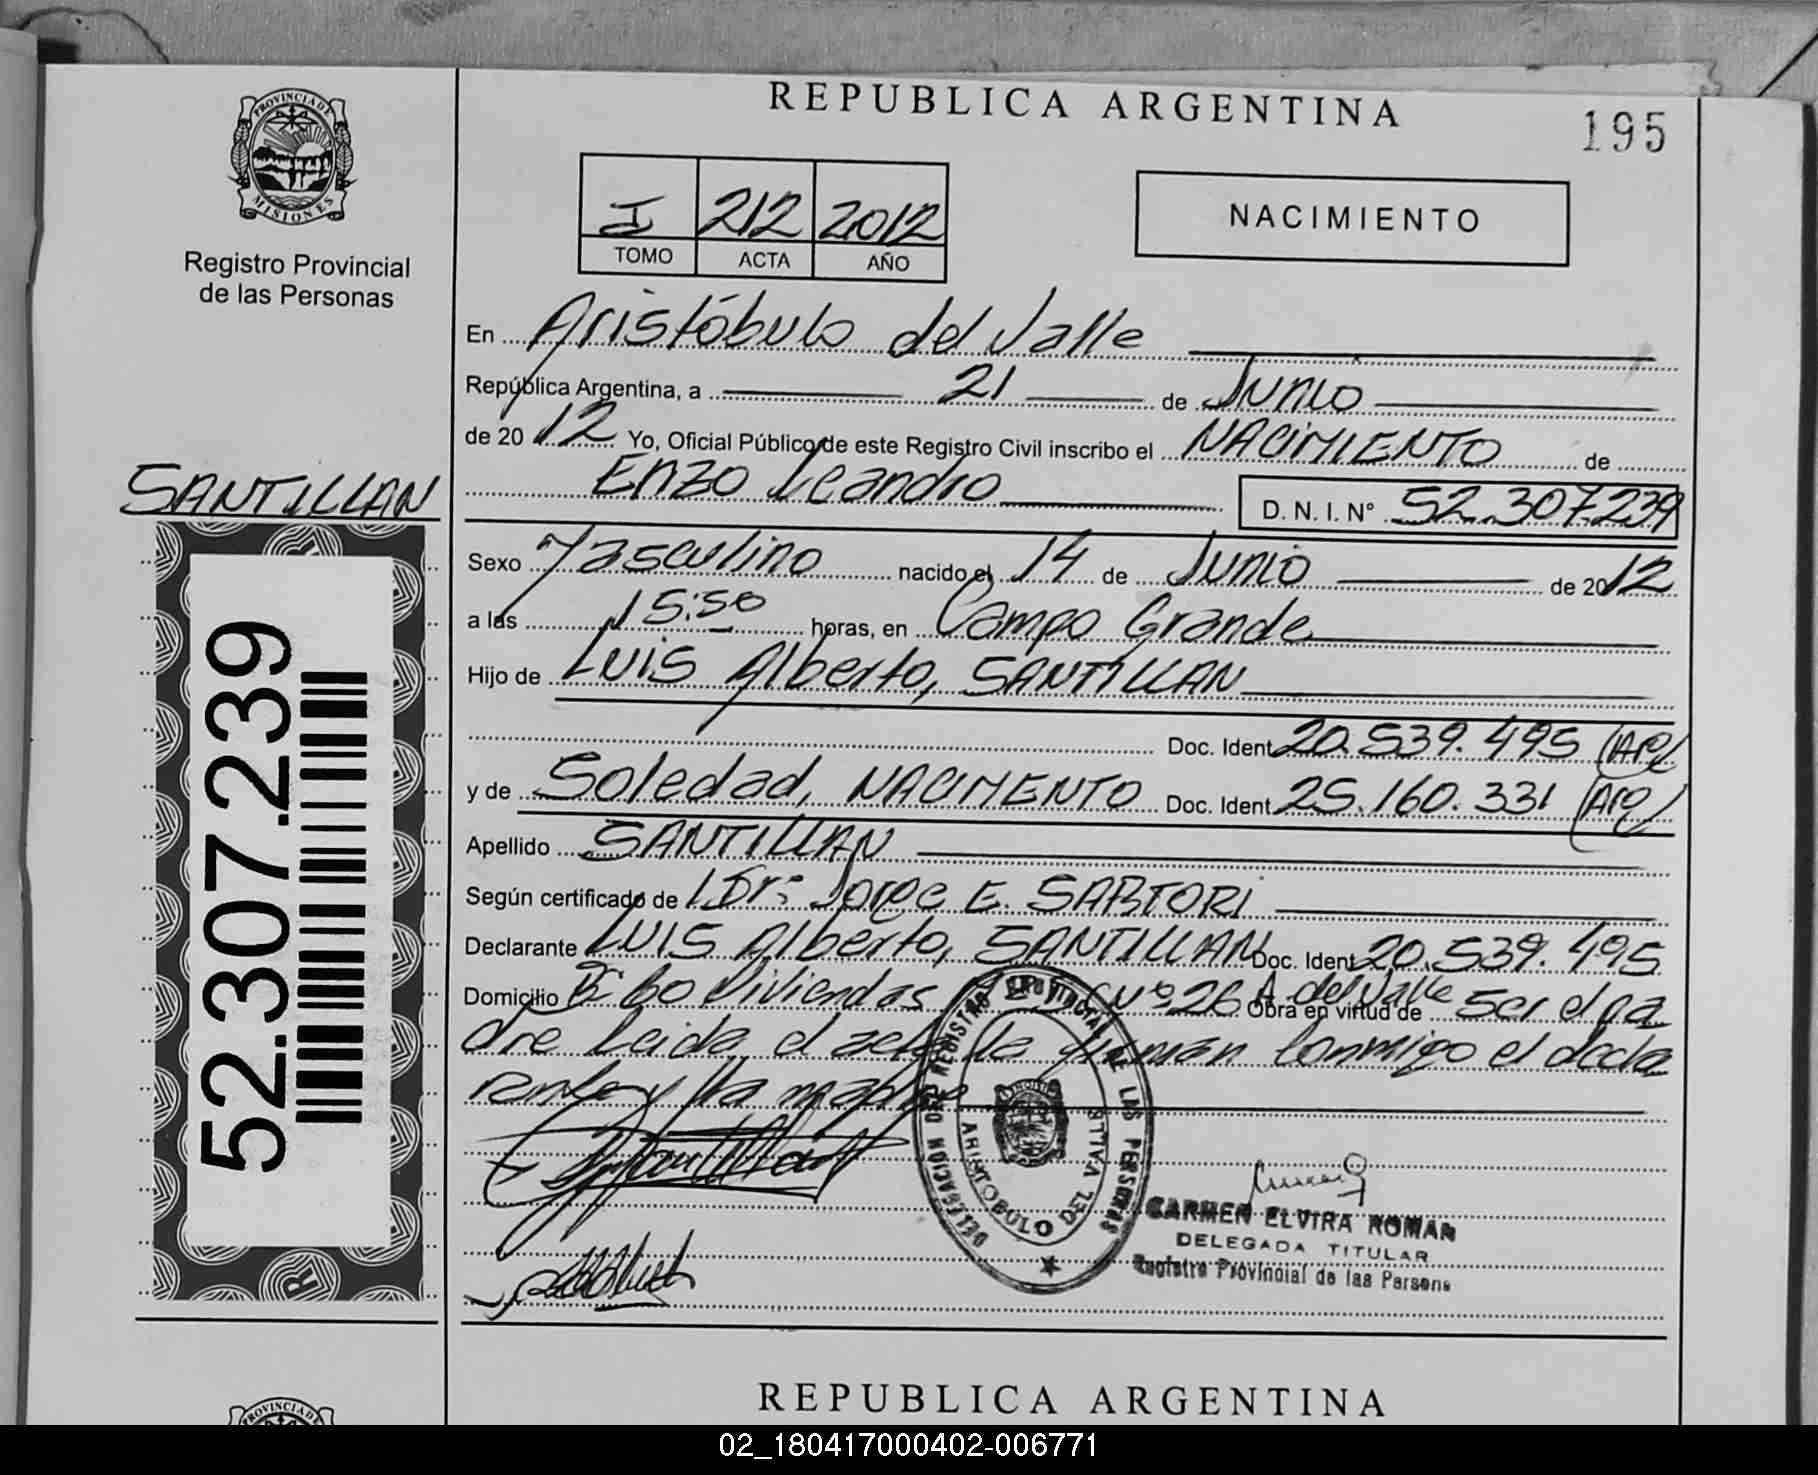 REPUBLICA ARGENTINA
195
PROVINCIA DE
MISIONES
Registro Provincial
de las Personas
I 212 2012
TOMO ACTA AÑO
NACIMIENTO
En Aristóbulo del Valle
República Argentina, a 21 de Junio
de 2012 Yo, Oficial Público de este Registro Civil inscribo el NACIMIENTO de
Enzo Leandro D. N. I. N° 52.307.239
SANTILLAN
52.307.239
Sexo Masculino nacido el 14 de Junio de 2012
a las 15:50 horas, en Campo Grande
Hijo de Luis Alberto, SANTILLAN
Doc. Ident 20.539.495 (Arg)
y de Soledad, NACIMENTO Doc. Ident 25.160.331 (Arg)
Apellido SANTILLAN
Según certificado de Dr: Jorge E. SARTORI
Declarante Luis Alberto, SANTILLAN Doc. Ident 20.539.495
Domicilio B° 60 Viviendas N° 26 A. del Valle Obra en virtud de ser el pa
dre Leida el firman conmigo el decla
rante y la madre
DELEGACION DEL REGISTRO PROVINCIAL DE LAS PERSONAS
ARISTOBULO DEL VALLE
CARMEN ELVIRA ROMAN
DELEGADA TITULAR
Registro Provincial de las Persona
REPUBLICA ARGENTINA
PROVINCIA DE
02_180417000402-006771